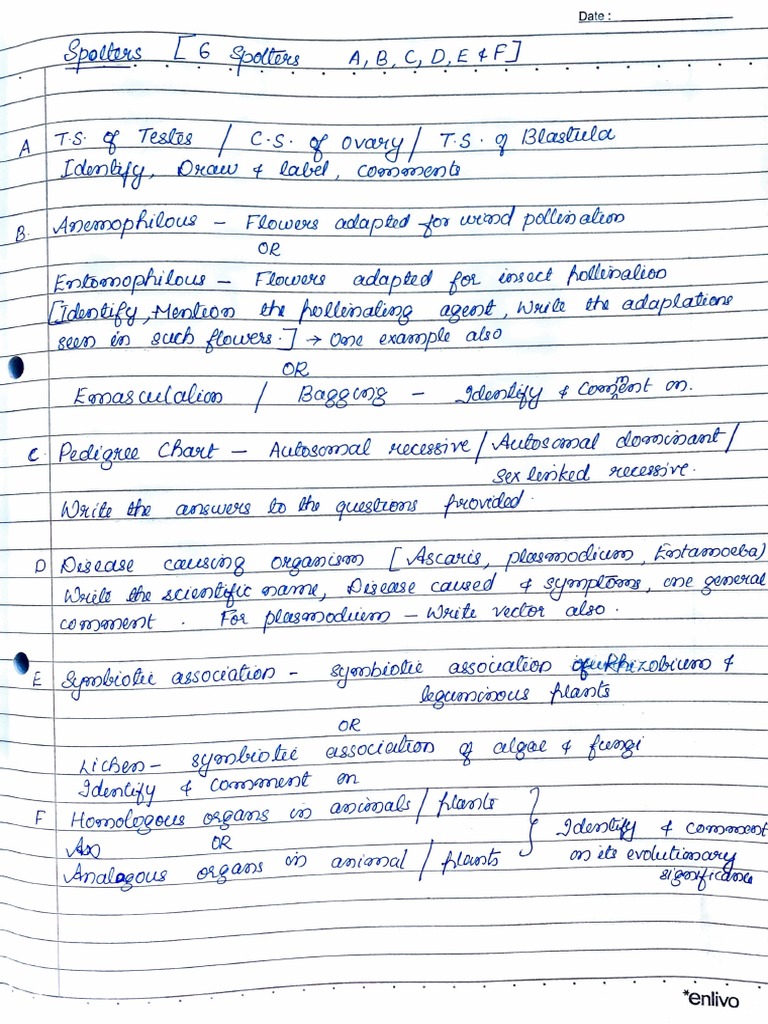 Date :
Spotters [ 6 Spotters A, B, C, D, E & F ]
A T.S. of Testes / C.S. of ovary / T.S. of Blastula
Identify, Draw & label, comments
B. Anemophilous - Flowers adapted for wind pollination
OR
Entomophilous - Flowers adapted for insect pollination
[Identify, Mention the pollinating agent, Write the adaptations
seen in such flowers.] → One example also
OR
Emasculation / Bagging - Identify & comment on.
C. Pedigree Chart - Autosomal recessive / Autosomal dominant /
Sex linked recessive.
Write the answers to the questions provided.
D Disease causing organism [ Ascaris, plasmodium, Entamoeba)
Write the scientific name, Disease caused & symptoms, one general
comment . For plasmodium - Write vector also .
E Symbiotic association - symbiotic association Rhizobium &
leguminous plants
OR
Lichen - symbiotic association of algae & fungi
Identify & comment on
F Homologous organs in animals / plants
OR
Analogous organs in animal / plants
Identify & comment
on its evolutionary
significance
*enlivo